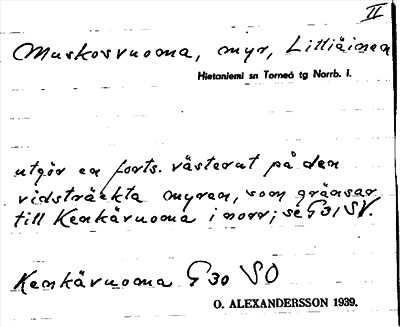 II
Muskosvuoma, myr, Littiäinen
Hietaniemi sn Torneå tg Norrb. l.
utgör en forts. västerut på den
vidsträckta myren, som gränsar
till Kenkävuoma i norr; se G31 SV.
Kenkävuoma G30 SO
O. ALEXANDERSSON 1939.